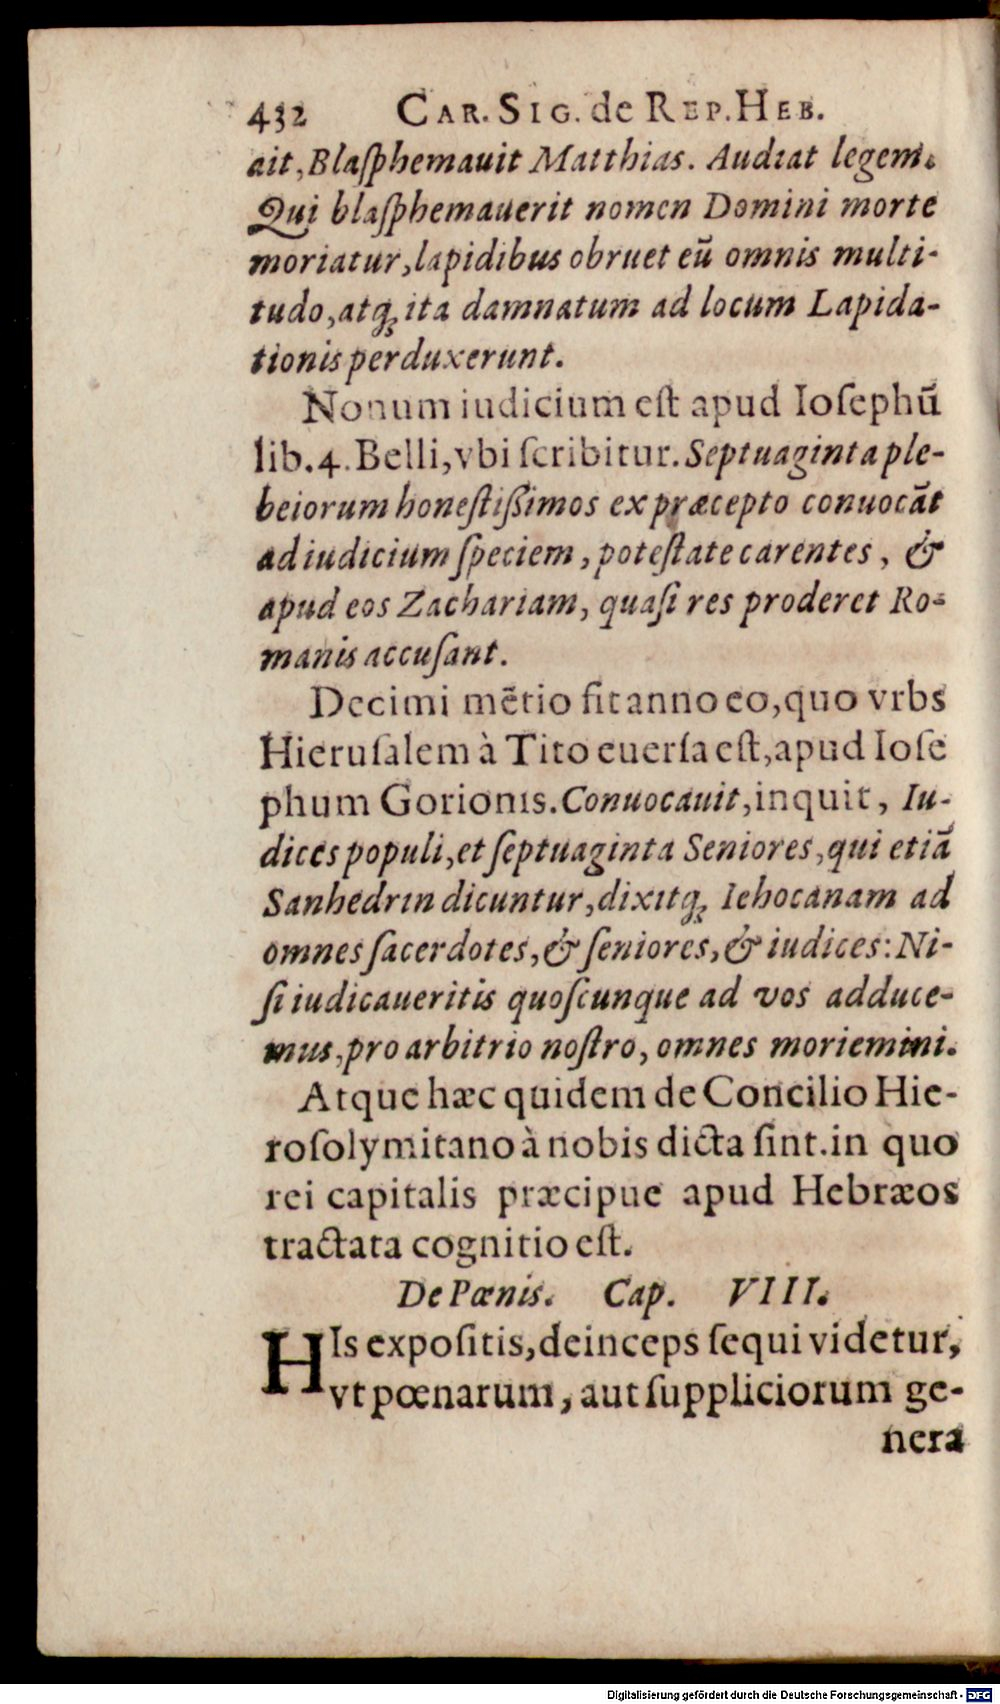 432 CAR. SIG. de REP. HEB.
ait, Blaſphemauit Matthias. Audiat legem.
Qui blaſphemauerit nomen Domini morte
moriatur, lapidibus obruet eũ omnis multi-
tudo, atq; ita damnatum ad locum Lapida-
tionis perduxerunt.
Nonum iudicium eſt apud Ioſephũ
lib. 4. Belli, vbi ſcribitur. Septuaginta ple-
beiorum honeſtiſſimos ex præcepto conuocãt
ad iudicium ſpeciem, poteſtate carentes, &
apud eos Zachariam, quaſi res proderet Ro-
manis accuſant.
Decimi mẽtio fit anno eo, quo vrbs
Hieruſalem à Tito euerſa eſt, apud Ioſe
phum Gorionis. Conuocauit, inquit, Iu-
dices populi, et ſeptuaginta Seniores, qui etiã
Sanhedrin dicuntur, dixitq; Iehocanam ad
omnes ſacerdotes, & ſeniores, & iudices: Ni-
ſi iudicaueritis quoſcunque ad vos adduce-
mus, pro arbitrio noſtro, omnes moriemini.
Atque hæc quidem de Concilio Hie-
roſolymitano à nobis dicta ſint. in quo
rei capitalis præcipue apud Hebræos
tractata cognitio eſt.
De Pœnis. Cap. VIII.
HIs expoſitis, deinceps ſequi videtur,
vt pœnarum, aut ſuppliciorum ge-
nera
Digitalisierung gefördert durch die Deutsche Forschungsgemeinschaft - DFG